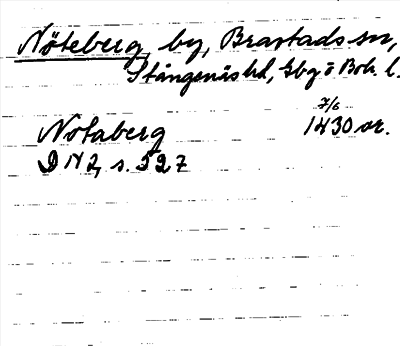 Nöteberg, by, Brastads sn,
Stångenäs hd, Gbg o Boh. l.
7/6
Notaberg 1430 or.
DN 2, s. 527